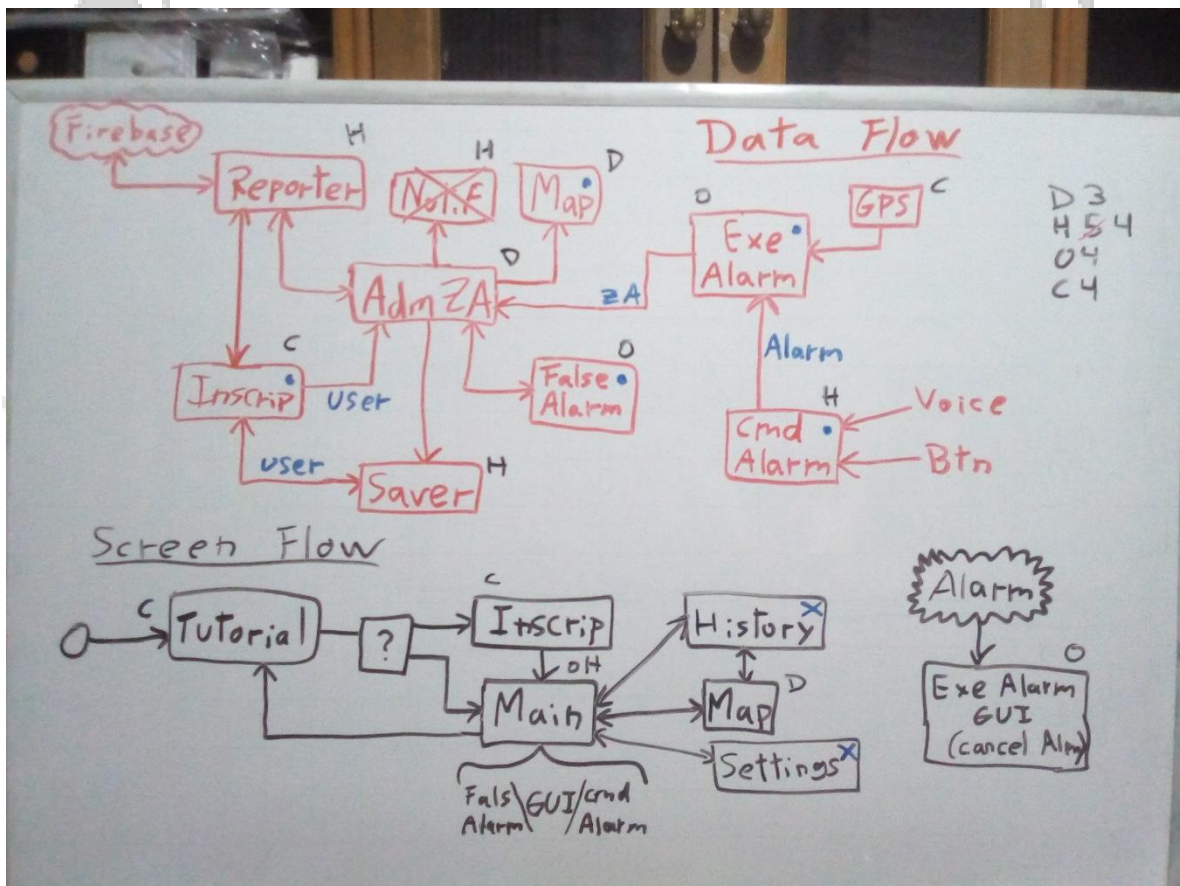 Data Flow
Firebase
H
Reporter
H
Not.F
D
Map
O
Exe
Alarm
C
GPS
D 3
H 5 4
O 4
C 4
D
Adm ZA
ZA
Alarm
C
Inscrip
user
O
False
Alarm
H
Cmd
Alarm
Voice
Btn
user
H
Saver
Screen Flow
C
Tutorial
?
C
Inscrip
OH
Main
History X
D
Map
Settings X
Fals\GUI/cmd
Alarm Alarm
Alarm
O
Exe Alarm
GUI
(cancel Alrm)